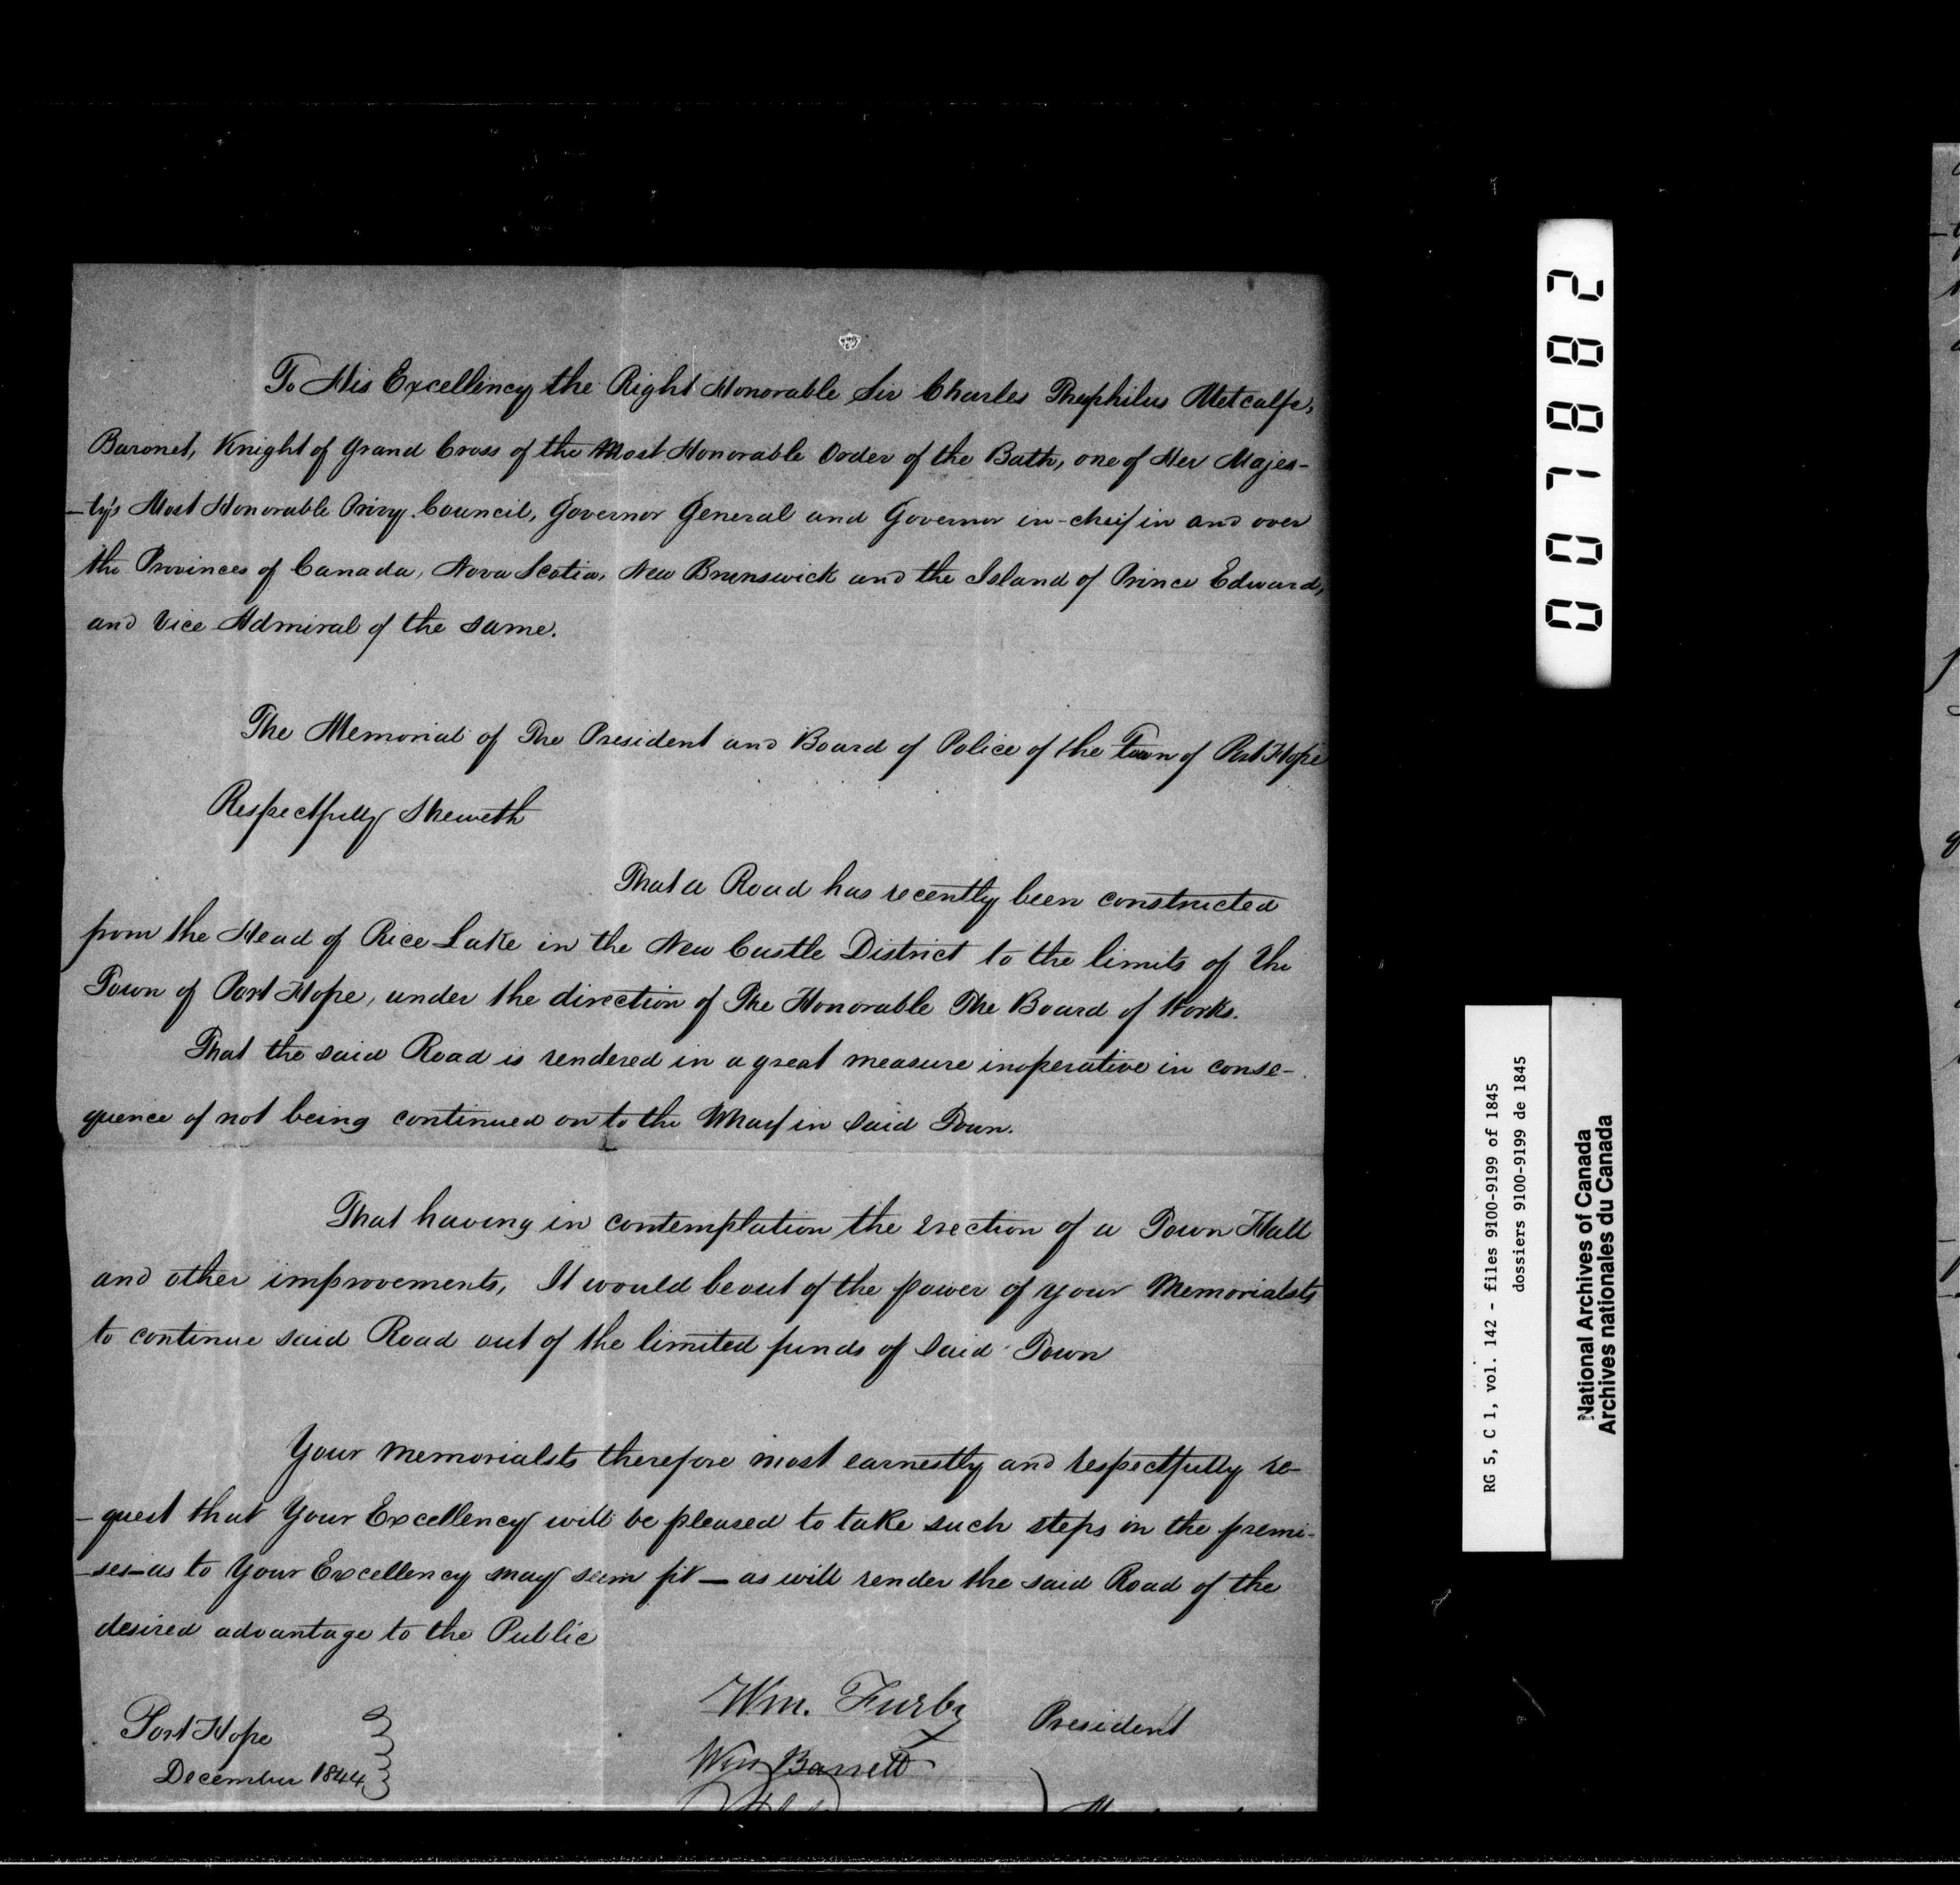 To His Excellency the Right Honorable Sir Charles Theophilus Metcalfe,
Baronet, Knight of Grand Cross of the Most Honorable Order of the Bath, one of Her Majes-
-ty's Most Honorable Privy Council, Governor General and Governor in-cheif in and over
the Provinces of Canada, Nova Scotia, New Brunswick and the Island of Prince Edward,
and Vice Admiral of the same.
The Memorial of The President and Board of Police of the Town of Port Hope
Respectfully Sheweth
That a Road has recently been constructed
from the Head of Rice Lake in the New Castle District to the limits of the
Town of Port Hope, under the direction of The Honorable The Board of Works.
That the said Road is rendered in a great measure inoperative in conse-
quence of not being continued on to the Wharf in said Town.
That having in contemplation the erection of a Town Hall
and other improvements, It would be out of the power of your Memorialsts
to continue said Road out of the limited funds of said Town
Your memorialsts therefore most earnestly and respectfully re-
-quest that Your Excellency will be pleased to take such steps in the premi-
-ses—as to Your Excellency may seem fit — as will render the said Road of the
desired advantage to the Public
Wm. Furby President
Port Hope
Wm Barrett
December 1844
007882
RG 5, C 1, vol. 142 - files 9100-9199 of 1845
dossiers 9100-9199 de 1845
National Archives of Canada
Archives nationales du Canada